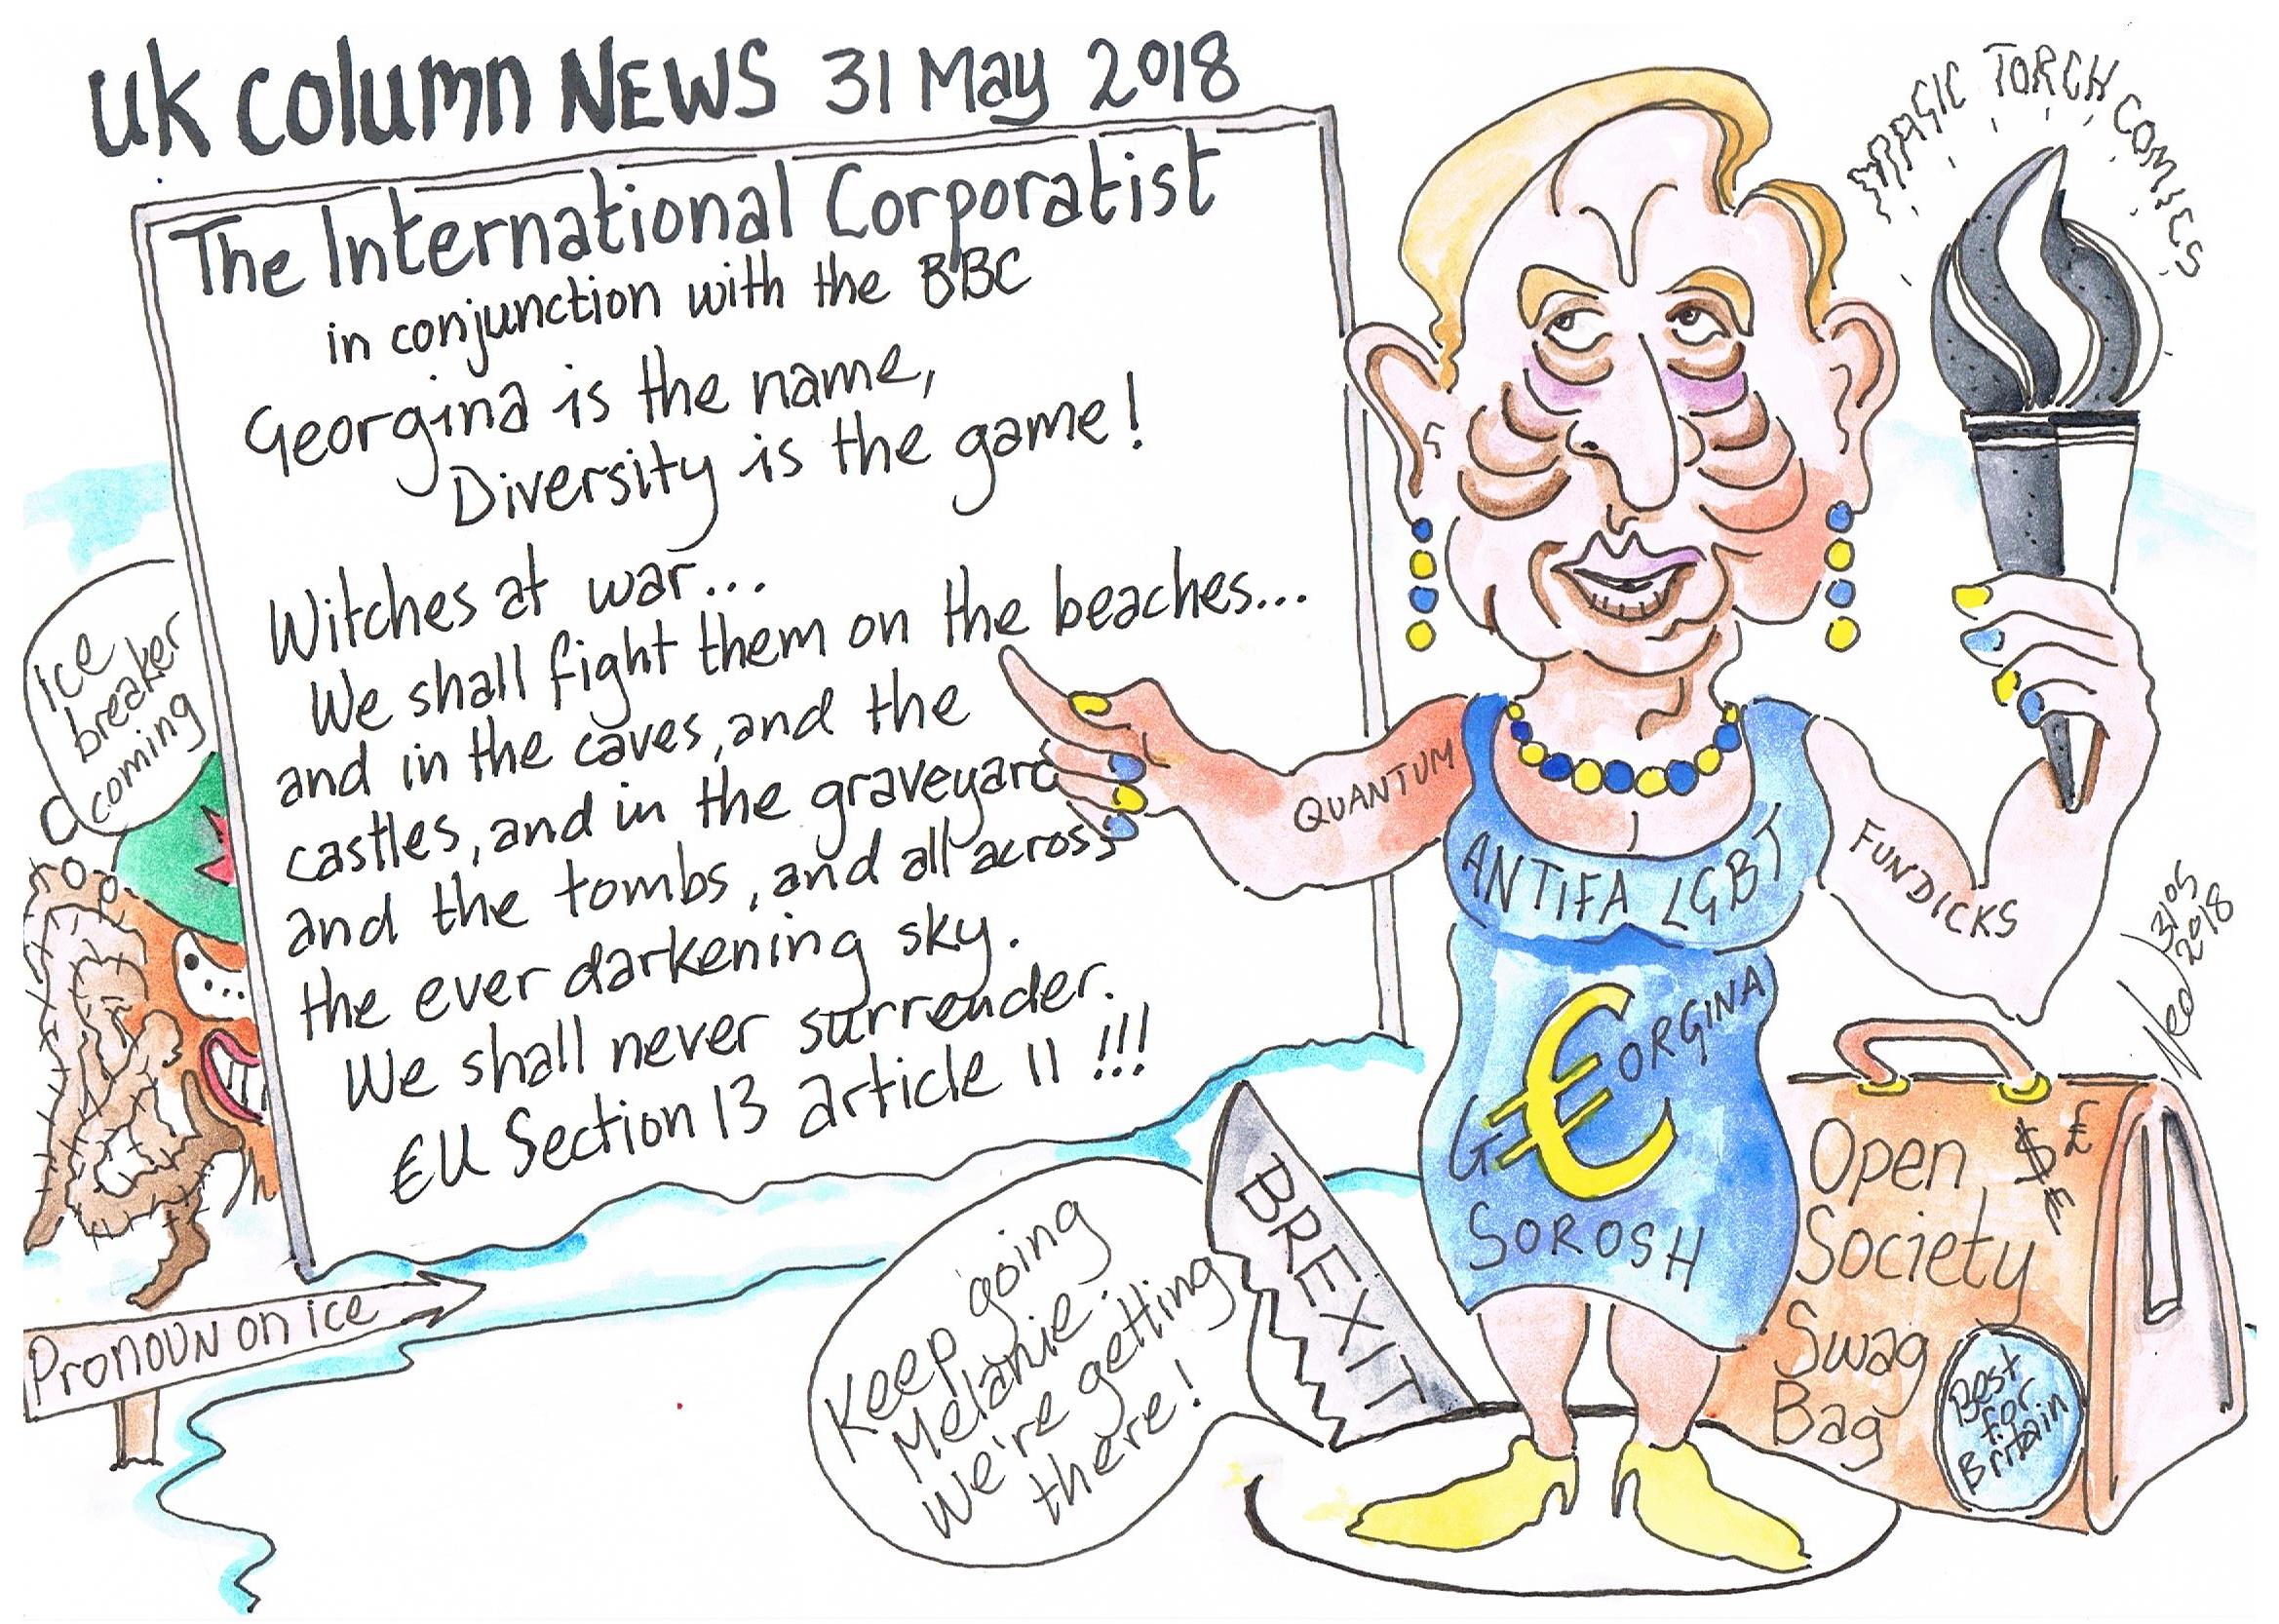 UK COLUMN NEWS 31 May 2018
MAGIC TORCH COMICS
The International Corporatist
in conjunction with the BBC
Georgina is the name,
Diversity is the game!
Witches at war...
We shall fight them on the beaches...
and in the caves, and the
castles, and in the graveyards
and the tombs, and all across
the ever darkening sky.
We shall never surrender.
€U Section 13 article 11 !!!
Ice
breaker
coming
Pronoun on ice
Keep going
Melanie.
We're getting
there!
BREXIT
QUANTUM
FUNDICKS
ANTIFA LGBT
G€ORGINA
SOROSH
Open $ £
Society €
Swag
Bag
Best
for
Britain
Ned 31 05
2018